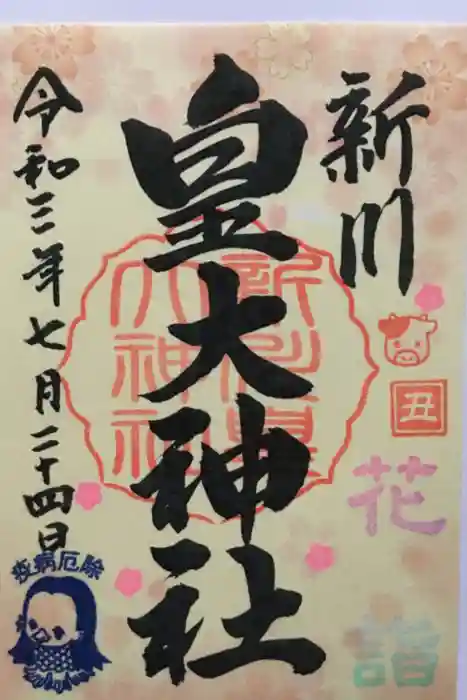 新川
皇大神社
新川皇
大神社
丑
花
詣
令和三年七月二十四日
疫病厄除